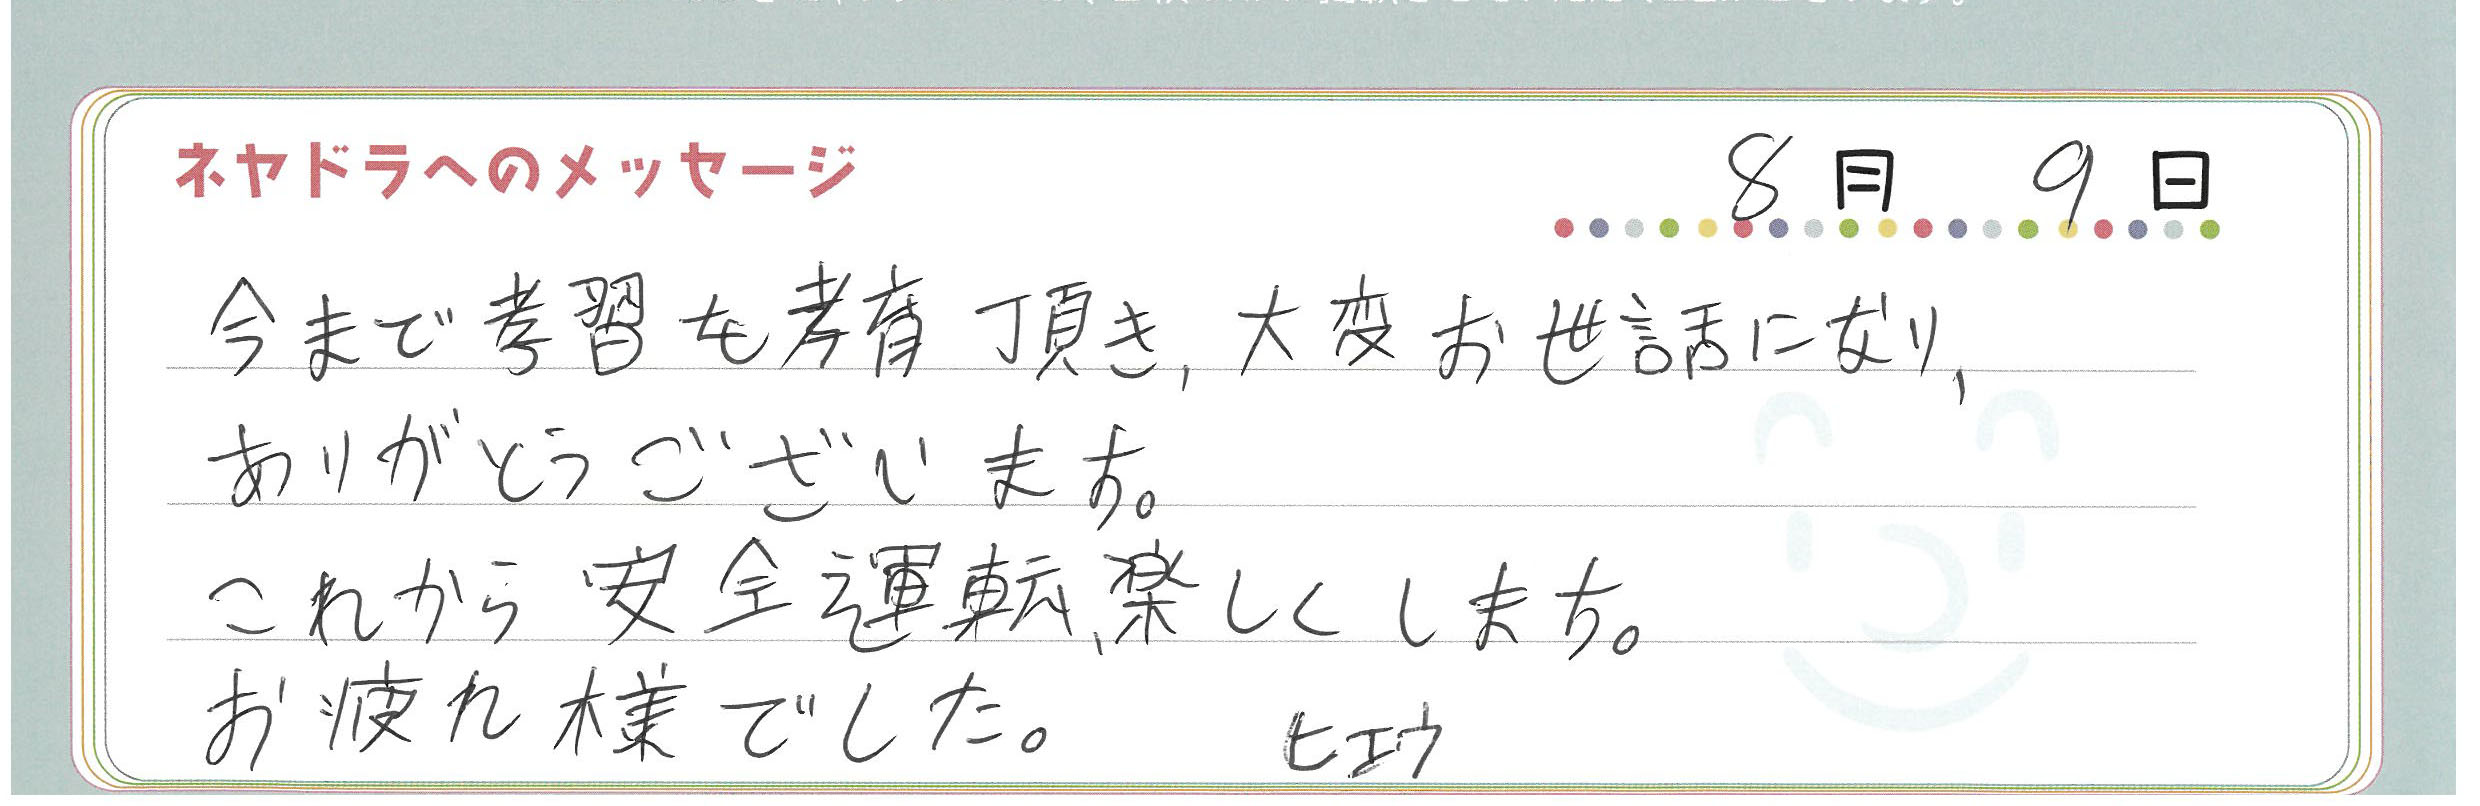 ネヤドラへのメッセージ
8月 9日
今まで考習も孝育頂き、大変お世話になり、
ありがとうございます。
これから安全運転、楽しくします。
お疲れ様でした。 ヒエウ